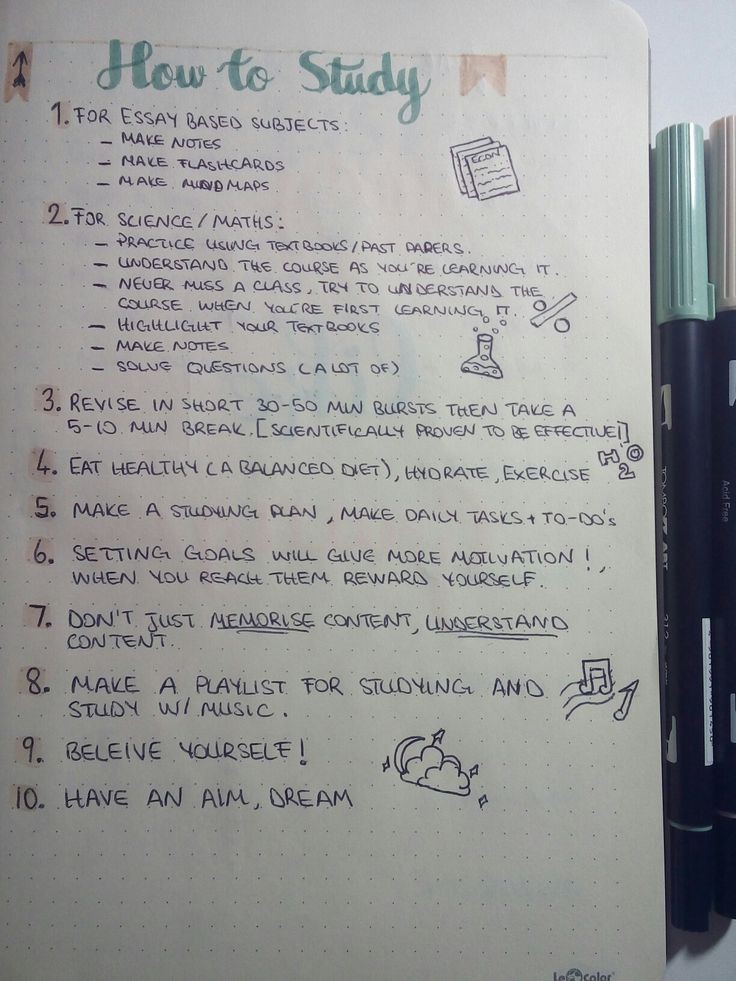 How to Study
1. FOR ESSAY BASED SUBJECTS:
- MAKE NOTES
- MAKE FLASHCARDS
- MAKE MINDMAPS
ECON
2. FOR SCIENCE/MATHS:
- PRACTICE USING TEXTBOOKS/PAST PAPERS.
- UNDERSTAND THE COURSE AS YOU'RE LEARNING IT.
- NEVER MISS A CLASS, TRY TO UNDERSTAND THE
COURSE WHEN YOU'RE FIRST LEARNING IT.
- HIGHLIGHT YOUR TEXTBOOKS
- MAKE NOTES
- SOLVE QUESTIONS (A LOT OF)
%
3. REVISE IN SHORT 30-50 MIN BURSTS THEN TAKE A
5-10 MIN BREAK. [SCIENTIFICALLY PROVEN TO BE EFFECTIVE!]
4. EAT HEALTHY (A BALANCED DIET), HYDRATE, EXERCISE
H2O
5. MAKE A STUDYING PLAN, MAKE DAILY TASKS + TO-DO'S
6. SETTING GOALS WILL GIVE MORE MOTIVATION!,
WHEN YOU REACH THEM REWARD YOURSELF.
7. DON'T JUST MEMORISE CONTENT, UNDERSTAND
CONTENT.
8. MAKE A PLAYLIST FOR STUDYING AND
STUDY W/ MUSIC.
9. BELEIVE YOURSELF!
10. HAVE AN AIM, DREAM
LeColor
Acid Free